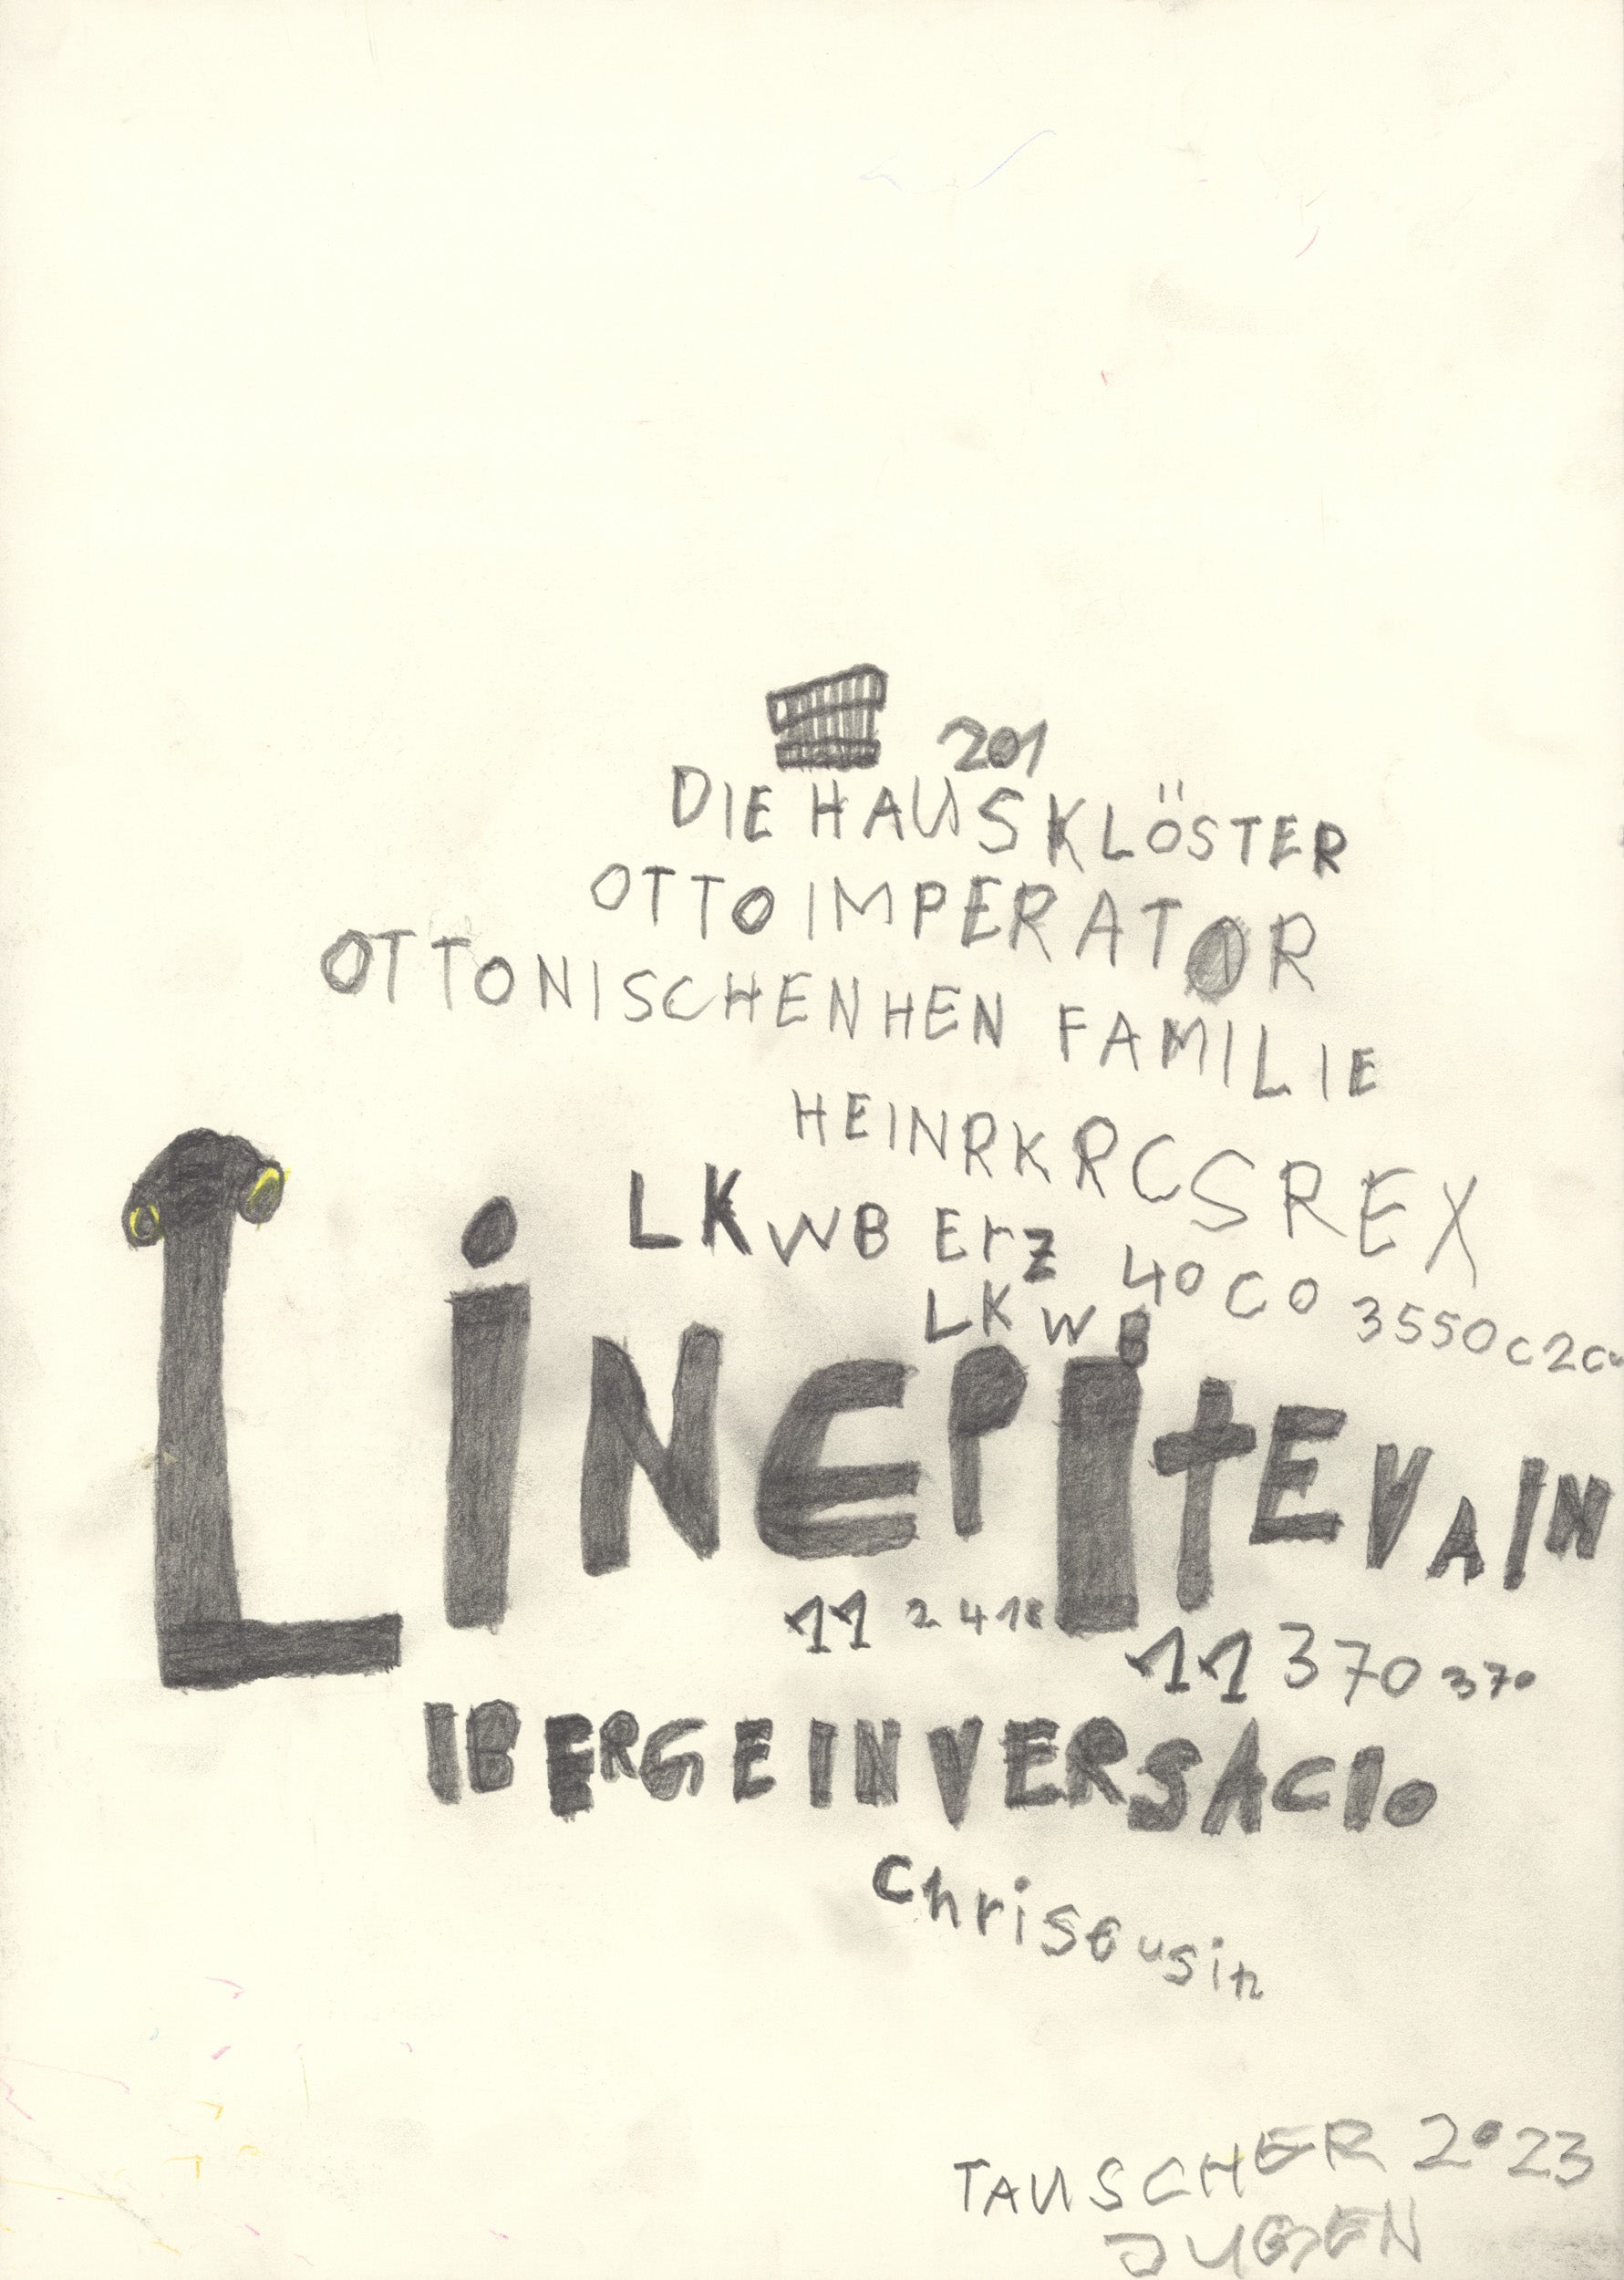 201
DIE HAUSKLÖSTER
OTTO IMPERATOR
OTTONISCHENHEN FAMILIE
HEINRKRCSREX
LKWB Erz 40 CO 3550
LKWB
LiNEPITEVAIN
11 2 4 18
11 370 370
IBERGEINVERSACIO
Chriseusin
TAUSCHER 2023
JUGEN